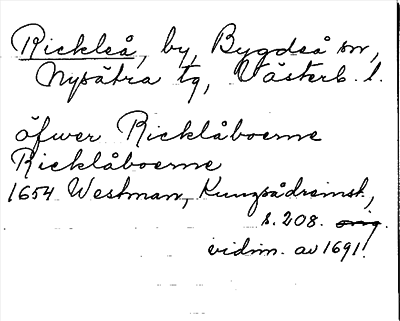 Rickleå, by, Bygdeå sn,
Nysätra tg, Västerb. l.
öfwer Ricklåboerne
Ricklåboerne
1654 Westman, Kungsådreinsk.,
s. 208. orig.
vidim. av 1691.